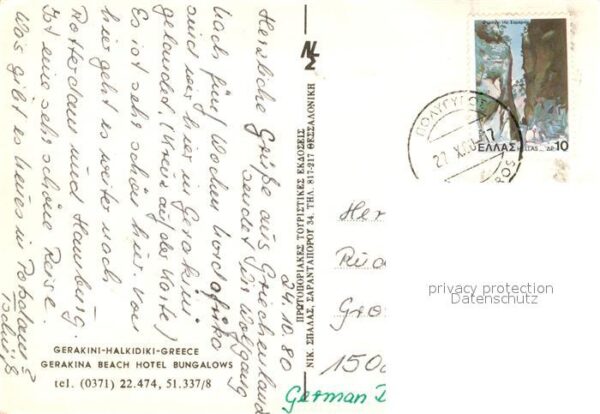 Herzliche Grüße aus Griechenland
sendet Ihr Wolfgang
Nach fünf Wochen Nordafrika
sind wir hier in Gerakini
gelandet. (Kreuz auf der Karte)
Es ist sehr schön hier. Von
hier geht es weiter nach
Rotterdam und Hamburg.
Ist eine sehr schöne Reise.
Was gibt es neues in Potsdam?
Tschüß
24.10.80
GERAKINI-HALKIDIKI-GREECE
GERAKINA BEACH HOTEL BUNGALOWS
tel. (0371) 22.474, 51.337/8
ΠΡΩΤΟΠΟΡΙΑΚΕΣ ΤΟΥΡΙΣΤΙΚΕΣ ΕΚΔΟΣΕΙΣ
ΝΙΚ. ΣΠΑΛΑΣ, ΣΑΡΑΝΤΑΠΟΡΟΥ 34, ΤΗΛ. 817-217 ΘΕΣΣΑΛΟΝΙΚΗ
ΕΛΛΑΣ HELLAS ΔΡ. 10
ΠΟΛΥΓΥΡΟΣ
27 X 80
Her
Rüd
Gro
150
German D
privacy protection
Datenschutz